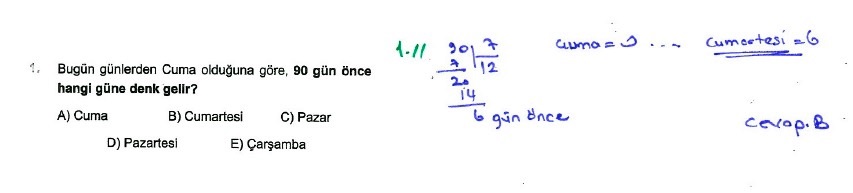 1. Bugün günlerden Cuma olduğuna göre, 90 gün önce
hangi güne denk gelir?
A) Cuma B) Cumartesi C) Pazar
D) Pazartesi E) Çarşamba
1.11
90 7
7 12
20
14
6 gün önce
Cuma = 0 ... Cumartesi = 6
cevap. B